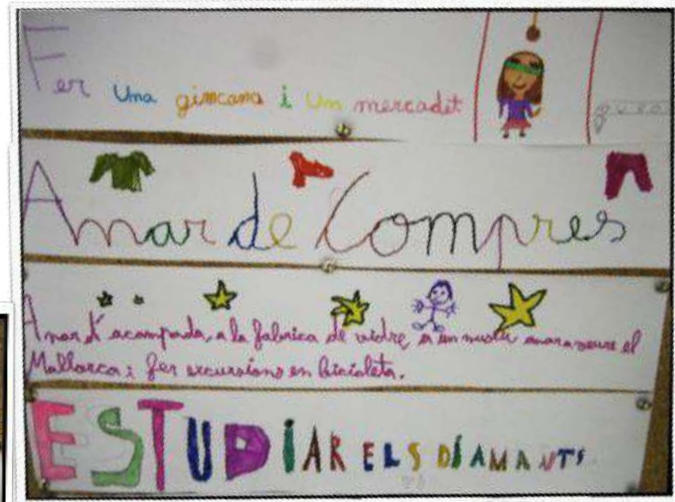 Fer una gimcana i un mercadet
Anar de Compres
Anar d'acampada, a la fabrica de vidre, a un museu anar a veure el
Mallorca i fer excursions en bicicleta.
ESTUDIAR ELS DÍAMANTS